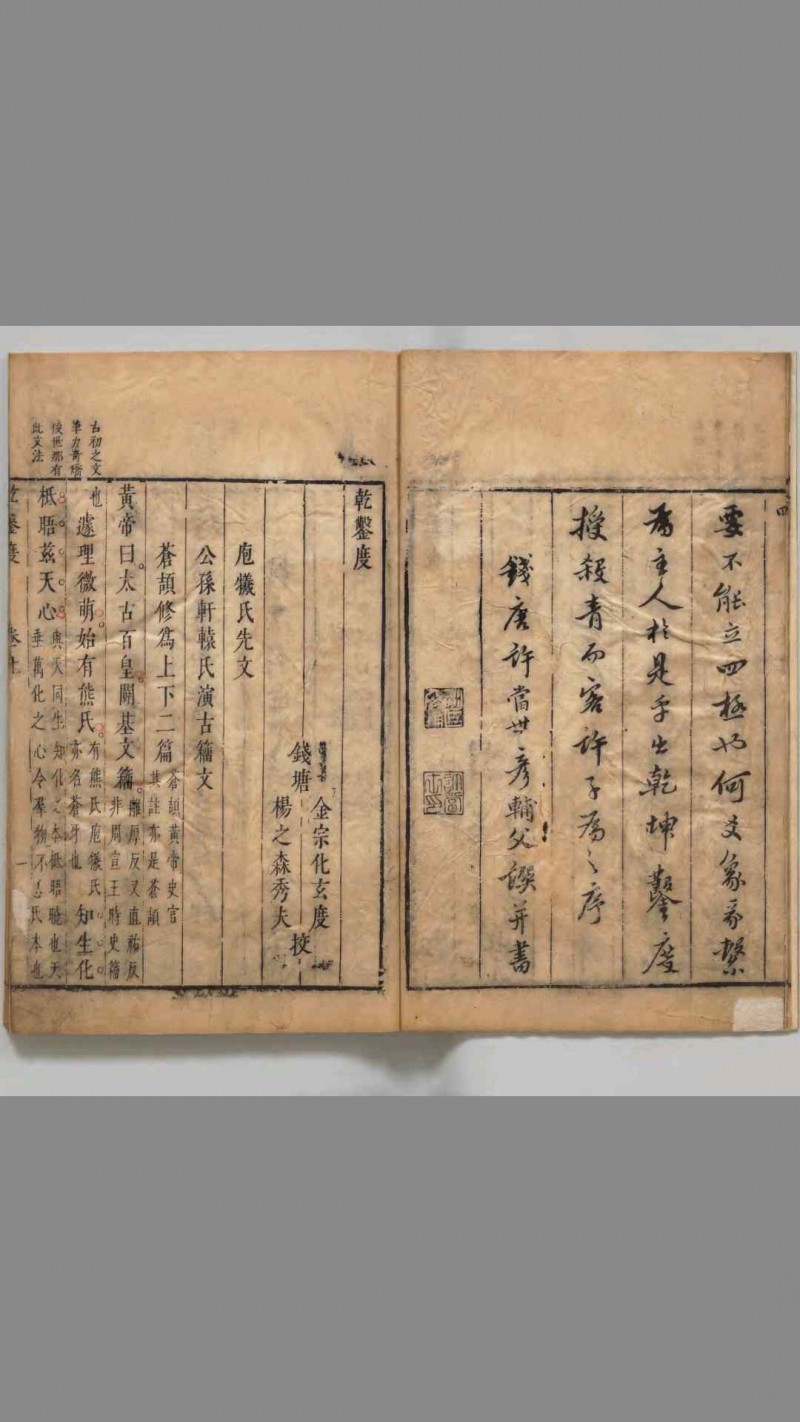 四
要不能立四極也何爻象承繫
為主人於是乎出乾坤鑿度
授殺青而客許子為之序
錢唐許當世彥輔父譔并書
乾鑿度
金宗化玄度
錢塘
楊之森秀夫
挍
庖犧氏先文
公孫軒轅氏演古籀文
蒼頡修為上下二篇
蒼頡黃帝史官
其註亦是蒼頡
黃帝曰太古百皇闢基文籀
離厚反又直祐反
非周宣王時史籀
也
遽理微萌始有熊氏
有熊氏庖犧氏
亦名蒼牙也
知生化
柢晤茲天心
與天同生知化之本柢晤曉也天
垂萬化之心令羣物不忘氏本也
古初之文
筆力奇
後世那有
此文法
卷上
一